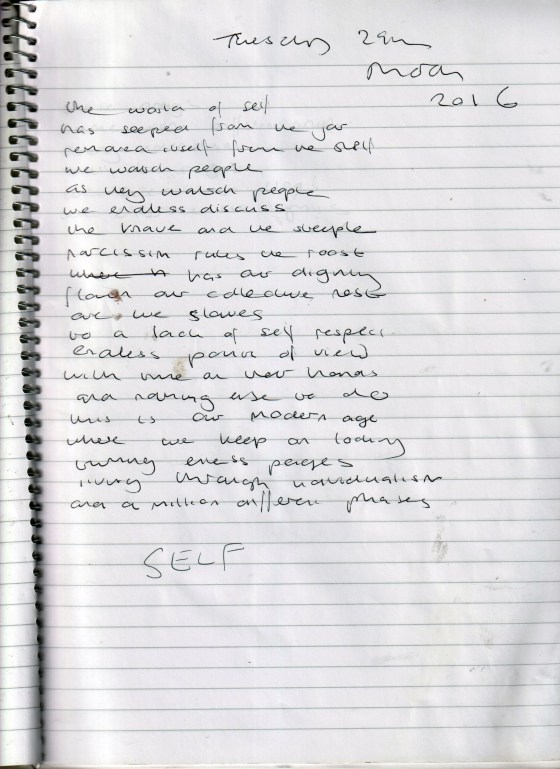 Tuesday 29th
March
2016
the world of self
has seeped from the jar
removed itself from the shelf
we watch people
as they watch people
we endless discuss
the brave and the steeple
narcissim rules the roost
has our dignity
flown our collective nest
are we slaves
to a lack of self respect
endless points of view
with time on their hands
and nothing else to do
this is our modern age
where we keep on looking
turning endless pages
living through individualism
and a million different phases
SELF